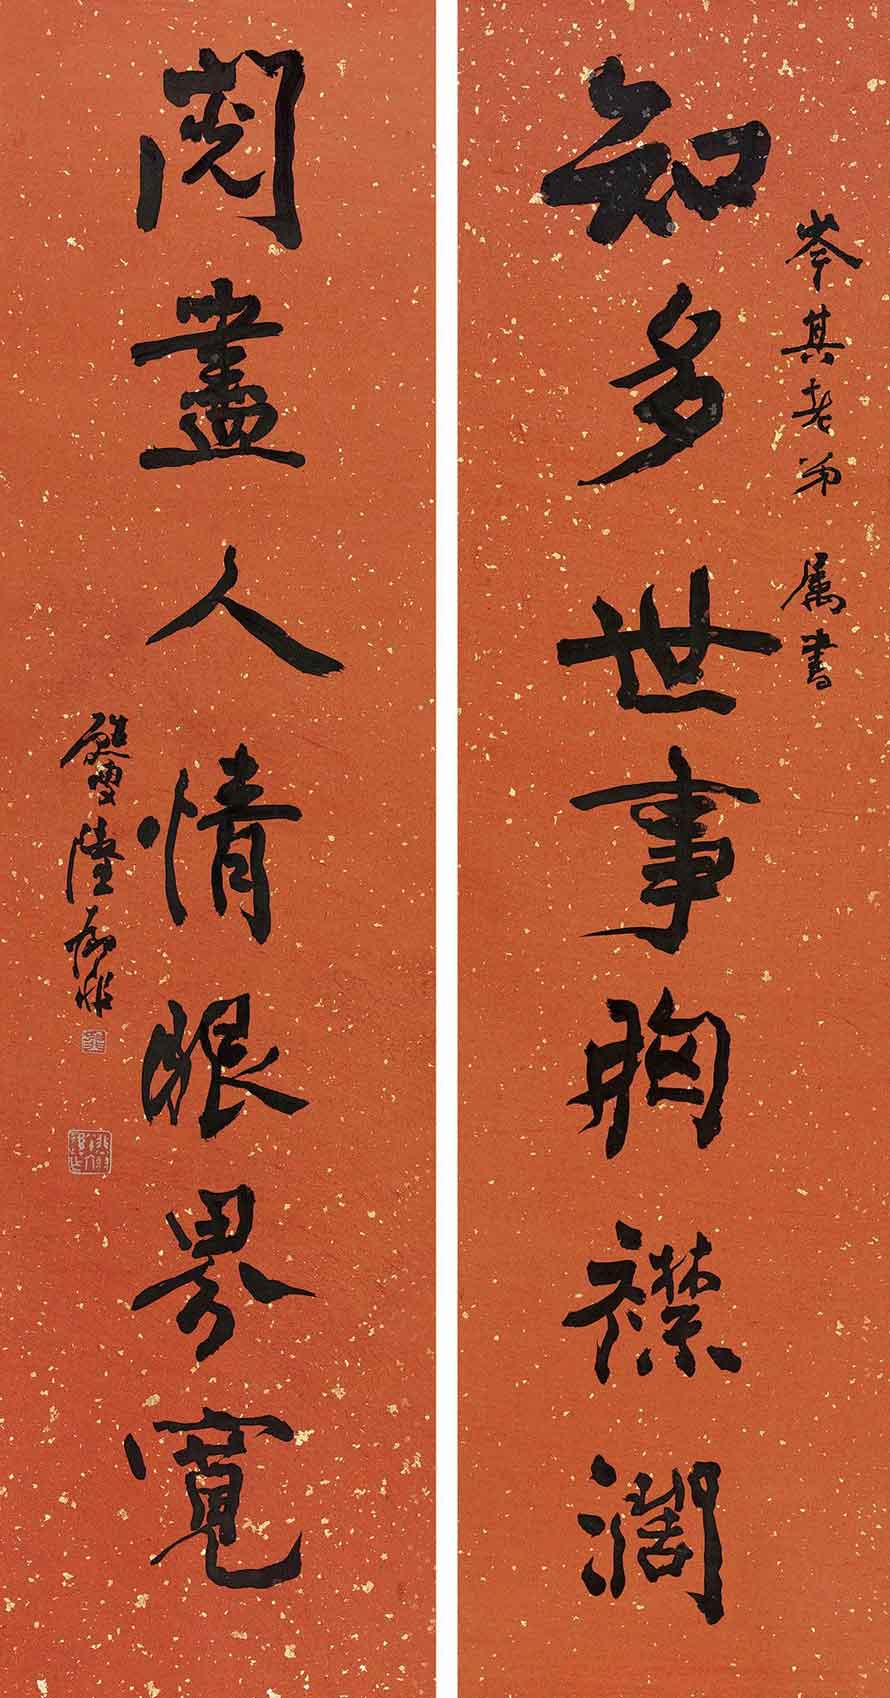 知多世事胸襟濶
岑其老弟 属書
閱盡人情眼界寬
陸俨